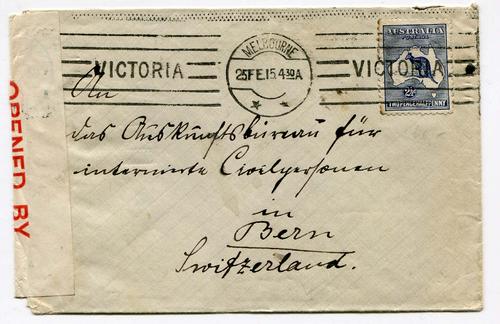 AUSTRALIA
POSTAGE
2½d
TWOPENCE HALFPENNY
MELBOURNE
25 FE. 15. 4.39 A
VICTORIA
VICTORIA
An
das Auskunftsbureau für
internirte Civilpersonen
in
Bern
Switzerland.
OPENED BY